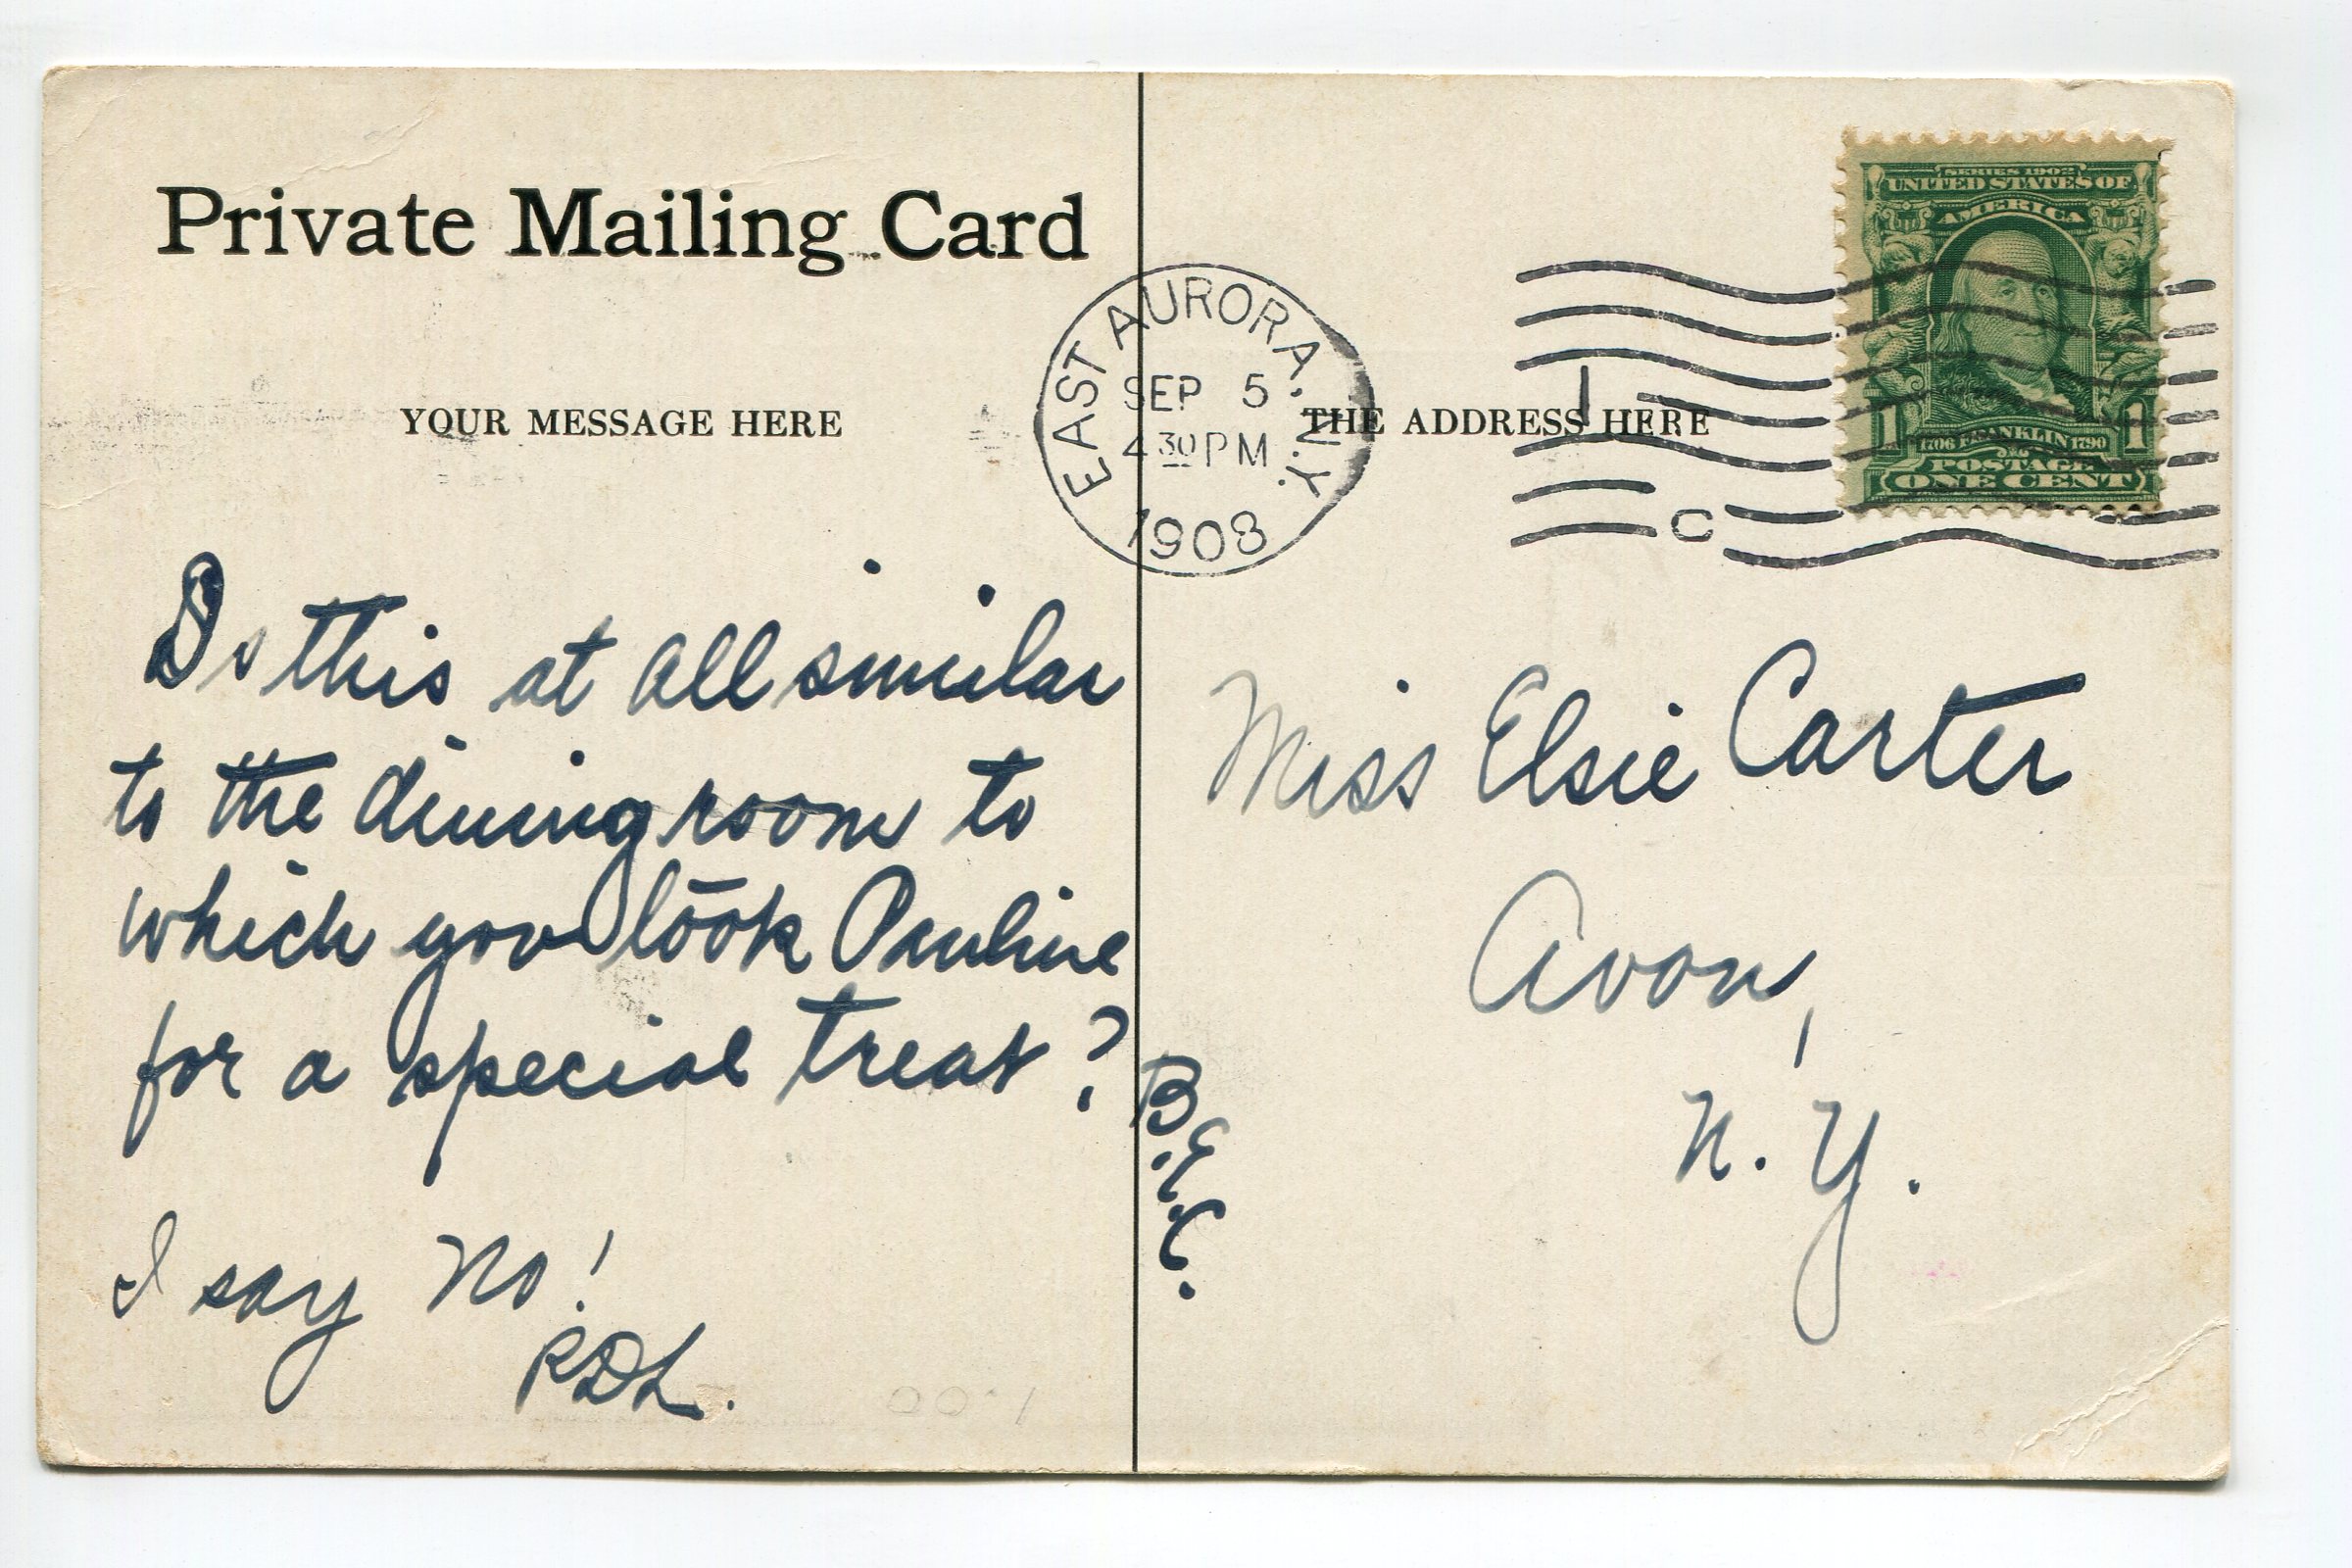 Private Mailing Card
YOUR MESSAGE HERE
Is this at all similar
to the dining room to
which you look Pauline
for a special treat?
B.E.C.
I say No!
RDL.
1.00
EAST AURORA, N.Y.
SEP 5
4 30 PM
1908
THE ADDRESS HERE
1
C
SERIES 1902
UNITED STATES OF
AMERICA
1706 FRANKLIN 1790
1 1
POSTAGE
ONE CENT
Miss Elsie Carter
Avon,
N.Y.